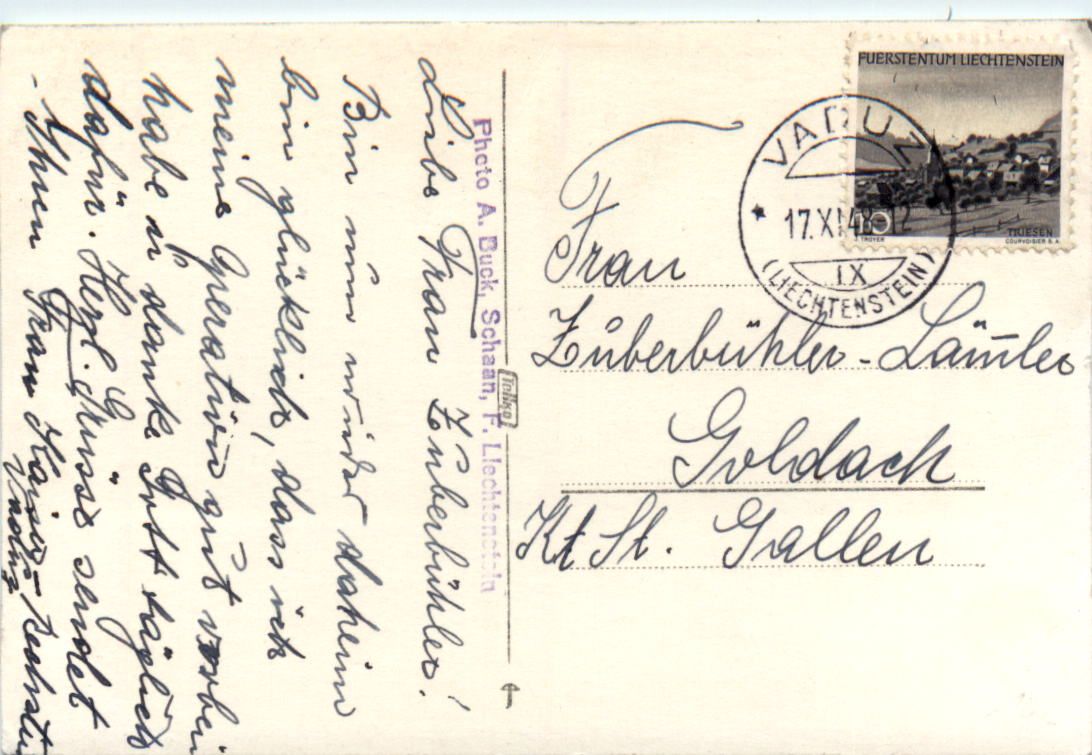 Liebe Frau Zuberbühler!
Bin nun wieder daheim
bin glücklich, dass ich
meine Operation gut vorbei
habe u. danke Gott täglich
dafür. Herzl. Grüsse sendet
- Ihnen Frau Kaiser-
Vaduz
Photo A. Buck, Schaan, F. Liechtenstein
FUERSTENTUM LIECHTENSTEIN
TRIESEN
J. TROYER
COURVOISIER S.A.
VADUZ
17.XI.48.12
IX
(LIECHTENSTEIN)
Frau
Zuberbühler-
Goldach
Kt St. Gallen